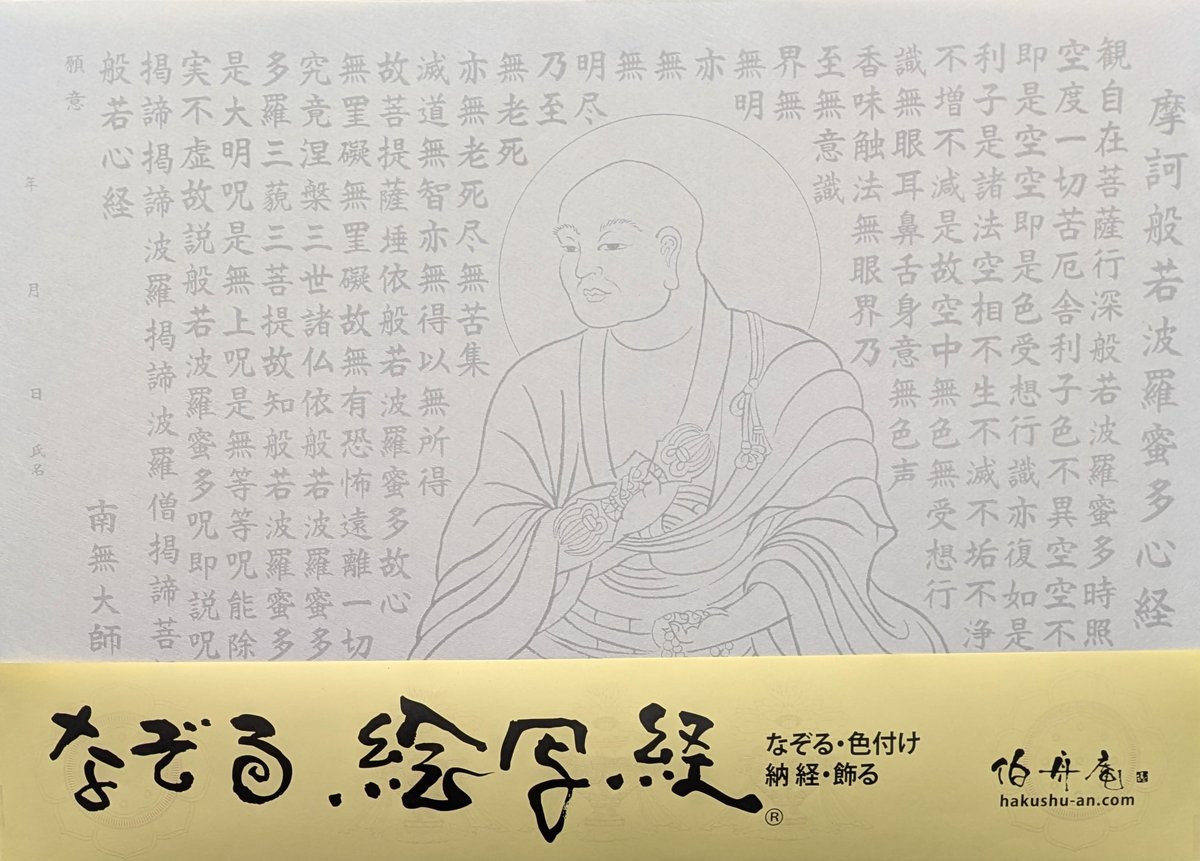 摩訶般若波羅蜜多心経
観自在菩薩行深般若波羅蜜多時照
空度一切苦厄舎利子色不異空空不
即是空空即是色受想行識亦復如是
利子是諸法空相不生不滅不垢不浄
不増不減是故空中無色無受想行
識無眼耳鼻舌身意無色声
香味触法無眼界乃
至無意識
界無
無明
亦
無
無
明尽
乃至
無老死
亦無老死尽無苦集
滅道無智亦無得以無所得
故菩提薩埵依般若波羅蜜多故心
無罣礙無罣礙故無有恐怖遠離一切
究竟涅槃三世諸仏依般若波羅蜜多
多羅三藐三菩提故知般若波羅蜜多
是大明呪是無上呪是無等等呪能除
実不虚故説般若波羅蜜多呪即説呪
掲諦掲諦 波羅掲諦 波羅僧掲諦 菩
般若心経 南無大師
願意
年 月 日 氏名
なぞる絵写経®
なぞる・色付け
納経・飾る
伯舟庵
hakushu-an.com